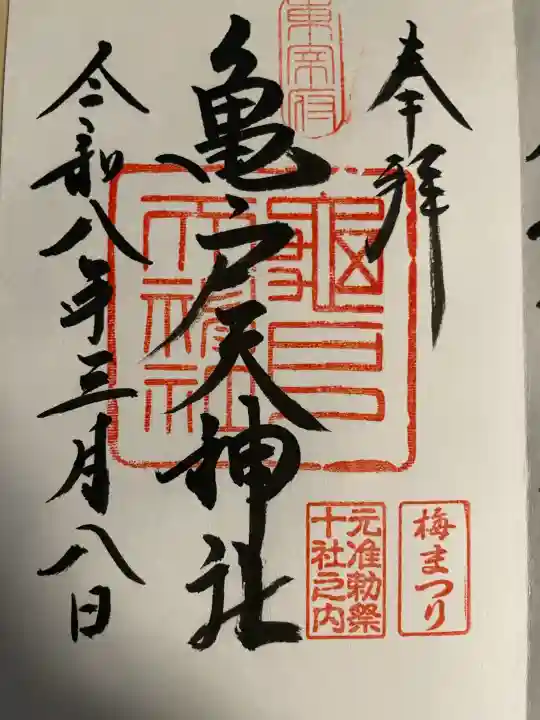 奉拝
東宰府
亀戸天神社
亀戸天神社
令和八年三月八日
梅まつり
元准勅祭
十社之内